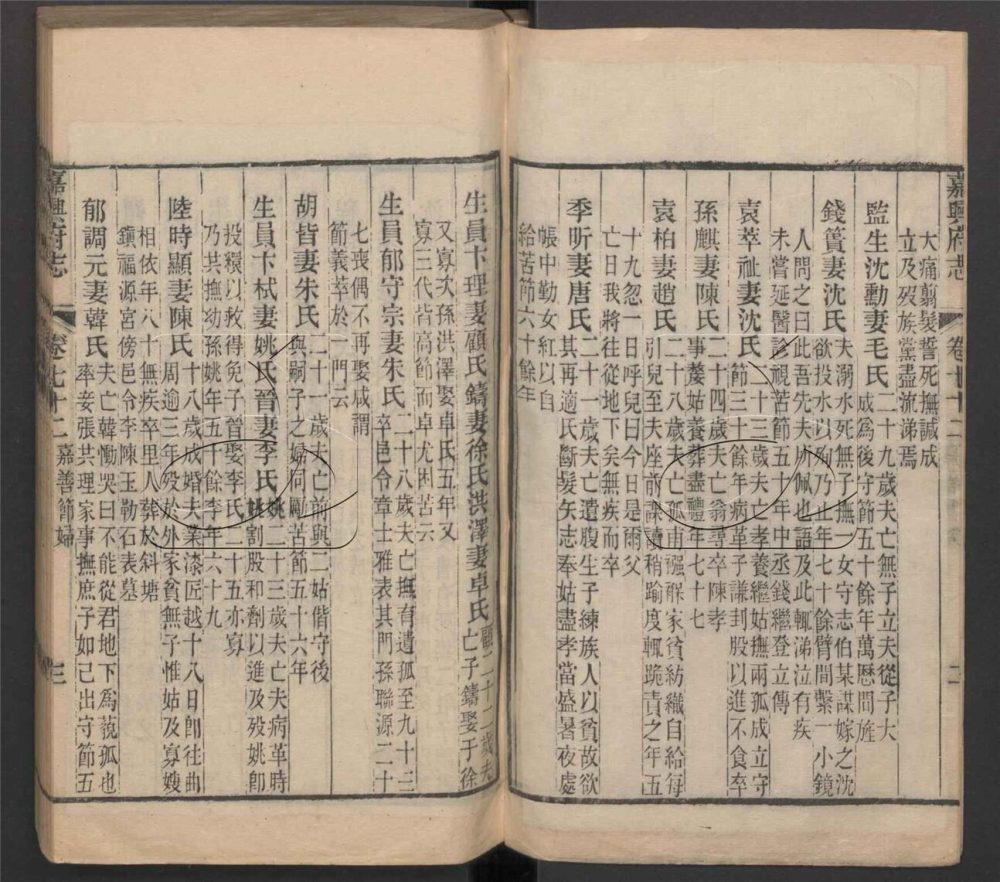 嘉興府志
卷七十二
二
大痛翦髮誓死撫誠成
立及歿族黨盡流涕焉
監生沈勳妻毛氏
二十九歲夫亡無子立夫從子大
成為後守節五十餘年萬厯間旌
錢簹妻沈氏
夫溺水死無子撫一女守志伯某謀嫁之沈
欲投水以殉乃止年七十餘臂間繫一小鏡
人問之曰此吾先夫所佩也語及此輒涕泣有疾
未嘗延醫診視苦節五十年中丞錢繼登立傳
袁萃祉妻沈氏
二十三歲夫亡孝養繼姑撫兩孤成立守
節三十餘年病革子謙刲股以進不食卒
孫麒妻陳氏
二十四歲夫亡翁尋卒陳孝
事嫠姑養葬盡禮年七十七
袁柏妻趙氏
二十八歲夫亡孤甫襁褓家貧紡織自給每
引兒至夫座前課讀稍踰度輒跪責之年五
十九忽一日呼兒曰今日是爾父
亡日我將往從地下矣無疾而卒
季昕妻唐氏
二十一歲夫亡遺腹生子練族人以貧故欲
其再適氏斷髮矢志奉姑盡孝當盛暑夜處
帳中勤女紅以自
給苦節六十餘年
生員卞理妻顧氏鑄妻徐氏洪澤妻卓氏
顧二十二歲夫
亡子鑄娶于徐
又寡次孫洪澤娶卓氏五年又
寡三代皆高節而卓尤困苦云
生員郁守宗妻朱氏
二十八歲夫亡撫育遺孤至九十三
卒邑令章士雅表其門孫聯源二十
七喪偶不再娶咸謂
節義萃於一門云
胡皆妻朱氏
二十一歲夫亡前與二姑偕守後
與嗣子之婦同勵苦節五十六年
生員卞栻妻姚氏晉妻李氏
姚二十三歲夫亡夫病革時
姚割股和劑以進及歿姚即
投繯以救得免子晉娶李氏二十五亦寡
乃共撫幼孫姚年五十餘李年六十九
陸時顯妻陳氏
十八歲成婚夫業漆匠越十八日即往曲
周逾三年歿於外家貧無子惟姑及寡嫂
相依年八十無疾卒里人葬於斜塘
鎮福源宮傍邑令李陳玉勒石表墓
郁調元妻韓氏
夫亡韓慟哭曰不能從君地下為藐孤也
率妾張共理家事撫庶子如己出守節五
嘉興府志
卷七十二
嘉善節婦
三